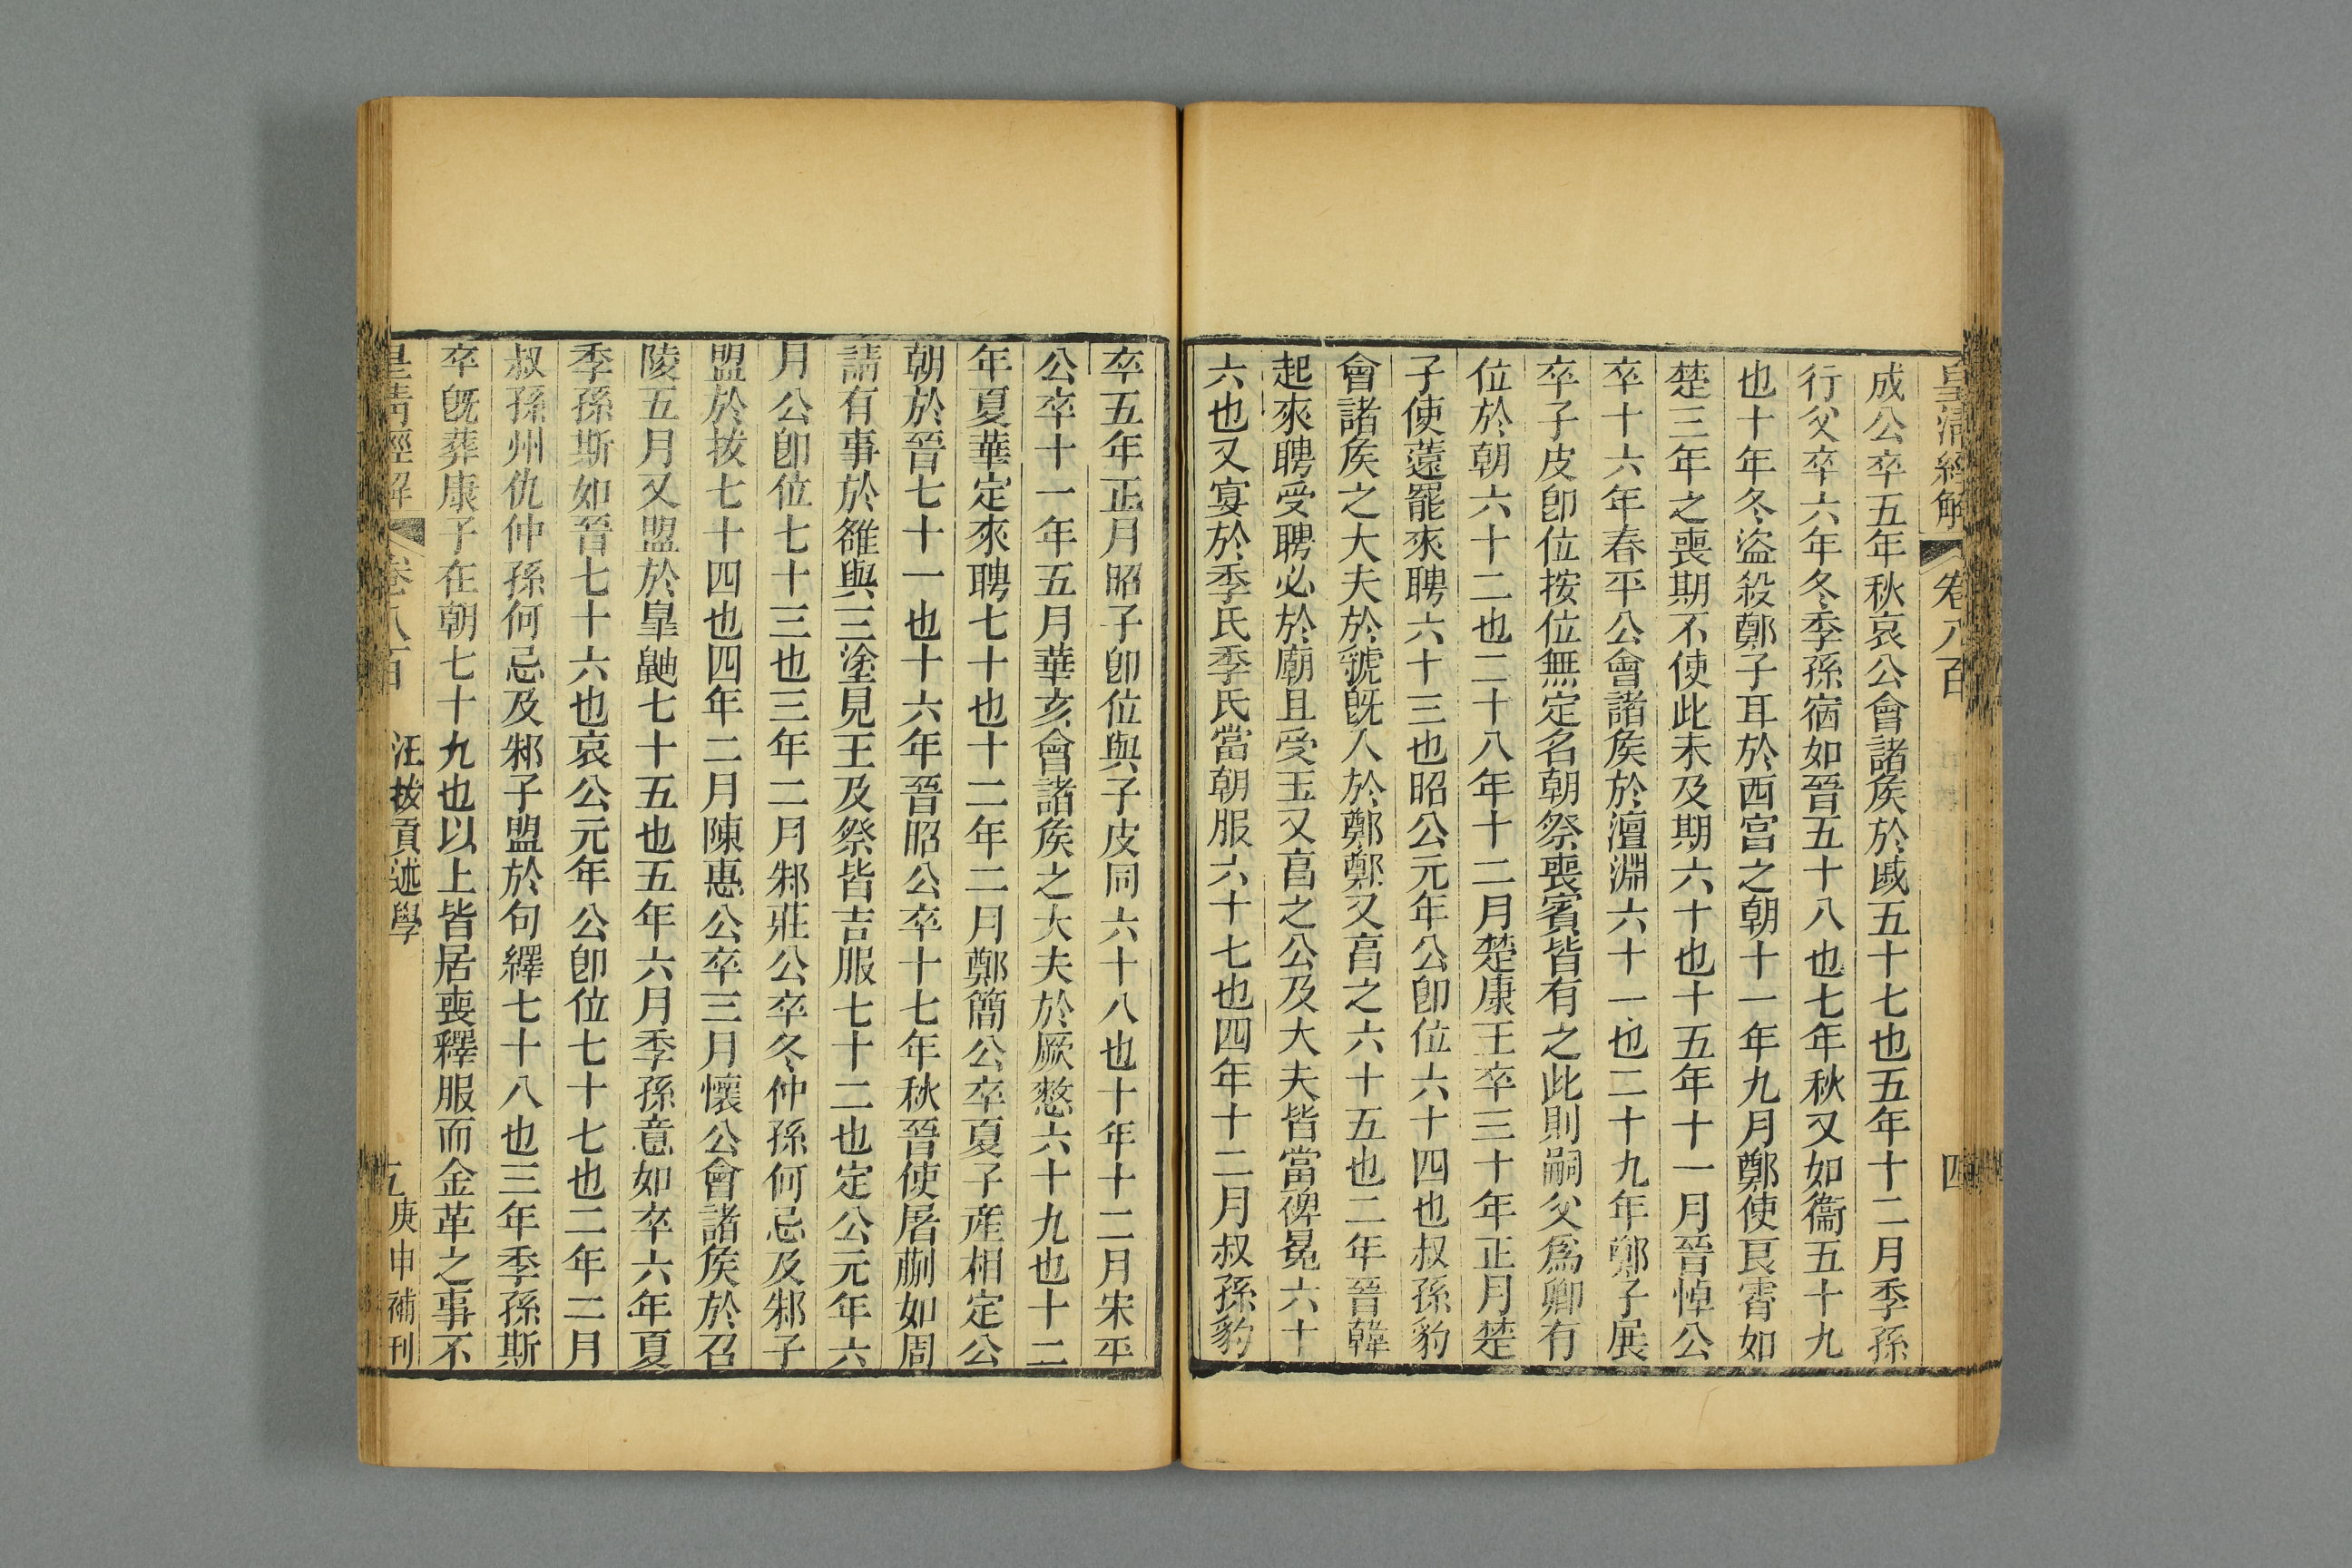 皇清經解 卷八百 四
成公卒五年秋哀公會諸矦於戚五十七也五年十二月季孫
行父卒六年冬季孫宿如晉五十八也七年秋又如衞五十九
也十年冬盗殺鄭子耳於西宮之朝十一年九月鄭使良霄如
楚三年之喪期不使此未及期六十也十五年十一月晉悼公
卒十六年春平公會諸矦於澶淵六十一也二十九年鄭子展
卒子皮卽位按位無定名朝祭喪賓皆有之此則嗣父爲卿有
位於朝六十二也二十八年十二月楚康王卒三十年正月楚
子使薳罷來聘六十三也昭公元年公卽位六十四也叔孫豹
會諸矦之大夫於虢旣入於鄭鄭又亯之六十五也二年晉韓
起來聘受聘必於廟且受玉又亯之公及大夫皆當禆冕六十
六也又宴於季氏季氏當朝服六十七也四年十二月叔孫豹
卒五年正月昭子卽位與子皮同六十八也十年十二月宋平
公卒十一年五月華亥會諸矦之大夫於厥憖六十九也十二
年夏華定來聘七十也十二年二月鄭簡公卒夏子産相定公
朝於晉七十一也十六年晉昭公卒十七年秋晉使屠蒯如周
請有事於雒與三塗見王及祭皆吉服七十二也定公元年六
月公卽位七十三也三年二月邾莊公卒冬仲孫何忌及邾子
盟於拔七十四也四年二月陳惠公卒三月懷公會諸矦於召
陵五月又盟於皐鼬七十五也五年六月季孫意如卒六年夏
季孫斯如晉七十六也哀公元年公卽位七十七也二年二月
叔孫州仇仲孫何忌及邾子盟於句繹七十八也三年季孫斯
卒旣葬康子在朝七十九也以上皆居喪釋服而金革之事不
皇清經解 卷八百 汪拔貢述學 五 庚申補刊